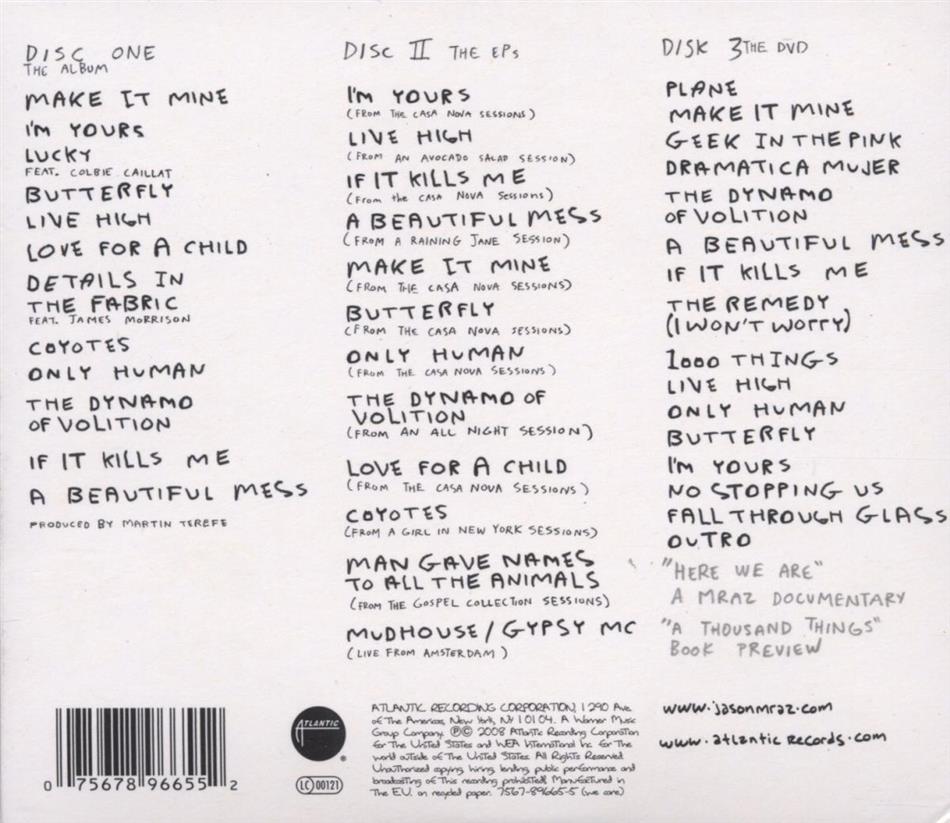 DISC ONE
THE ALBUM
MAKE IT MINE
I'M YOURS
LUCKY
FEAT. COLBIE CAILLAT
BUTTERFLY
LIVE HIGH
LOVE FOR A CHILD
DETAILS IN
THE FABRIC
FEAT. JAMES MORRISON
COYOTES
ONLY HUMAN
THE DYNAMO
OF VOLITION
IF IT KILLS ME
A BEAUTIFUL MESS
PRODUCED BY MARTIN TEREFE
DISC II THE EPs
I'M YOURS
(FROM THE CASA NOVA SESSIONS)
LIVE HIGH
(FROM AN AVOCADO SALAD SESSION)
IF IT KILLS ME
(From the CASA NOVA Sessions)
A BEAUTIFUL MESS
(FROM A RAINING JANE SESSION)
MAKE IT MINE
(FROM THE CASA NOVA SESSIONS)
BUTTERFLY
(FROM THE CASA NOVA SESSIONS)
ONLY HUMAN
(FROM THE CASA NOVA SESSIONS)
THE DYNAMO OF
VOLITION
(FROM AN ALL NIGHT SESSION)
LOVE FOR A CHILD
(FROM THE CASA NOVA SESSIONS)
COYOTES
(FROM A GIRL IN NEW YORK SESSIONS)
MAN GAVE NAMES
TO ALL THE ANIMALS
(FROM THE GOSPEL COLLECTION SESSIONS)
MUDHOUSE / GYPSY MC
(LIVE FROM AMSTERDAM)
DISK 3 THE DVD
PLANE
MAKE IT MINE
GEEK IN THE PINK
DRAMATICA MUJER
THE DYNAMO
OF VOLITION
A BEAUTIFUL MESS
IF IT KILLS ME
THE REMEDY
(I WON'T WORRY)
1000 THINGS
LIVE HIGH
ONLY HUMAN
BUTTERFLY
I'M YOURS
NO STOPPING US
FALL THROUGH GLASS
OUTRO
"HERE WE ARE"
A MRAZ DOCUMENTARY
"A THOUSAND THINGS"
BOOK PREVIEW
0 75678 96655 2
ATLANTIC
®
LC 00121
ATLANTIC RECORDING CORPORATION, 1290 Ave.
of The Americas, New York, NY 10104. A Warner Music
Group Company. ℗© 2008 Atlantic Recording Corporation
for The United States and WEA International Inc. for The
world outside of The United States. All Rights Reserved.
Unauthorized copying, hiring, lending, public performance and
broadcasting of This recording prohibited. Manufactured in
The E.U. on recycled paper. 7567-89665-5 (we care)
www.jasonmraz.com
www.atlantic Records.com